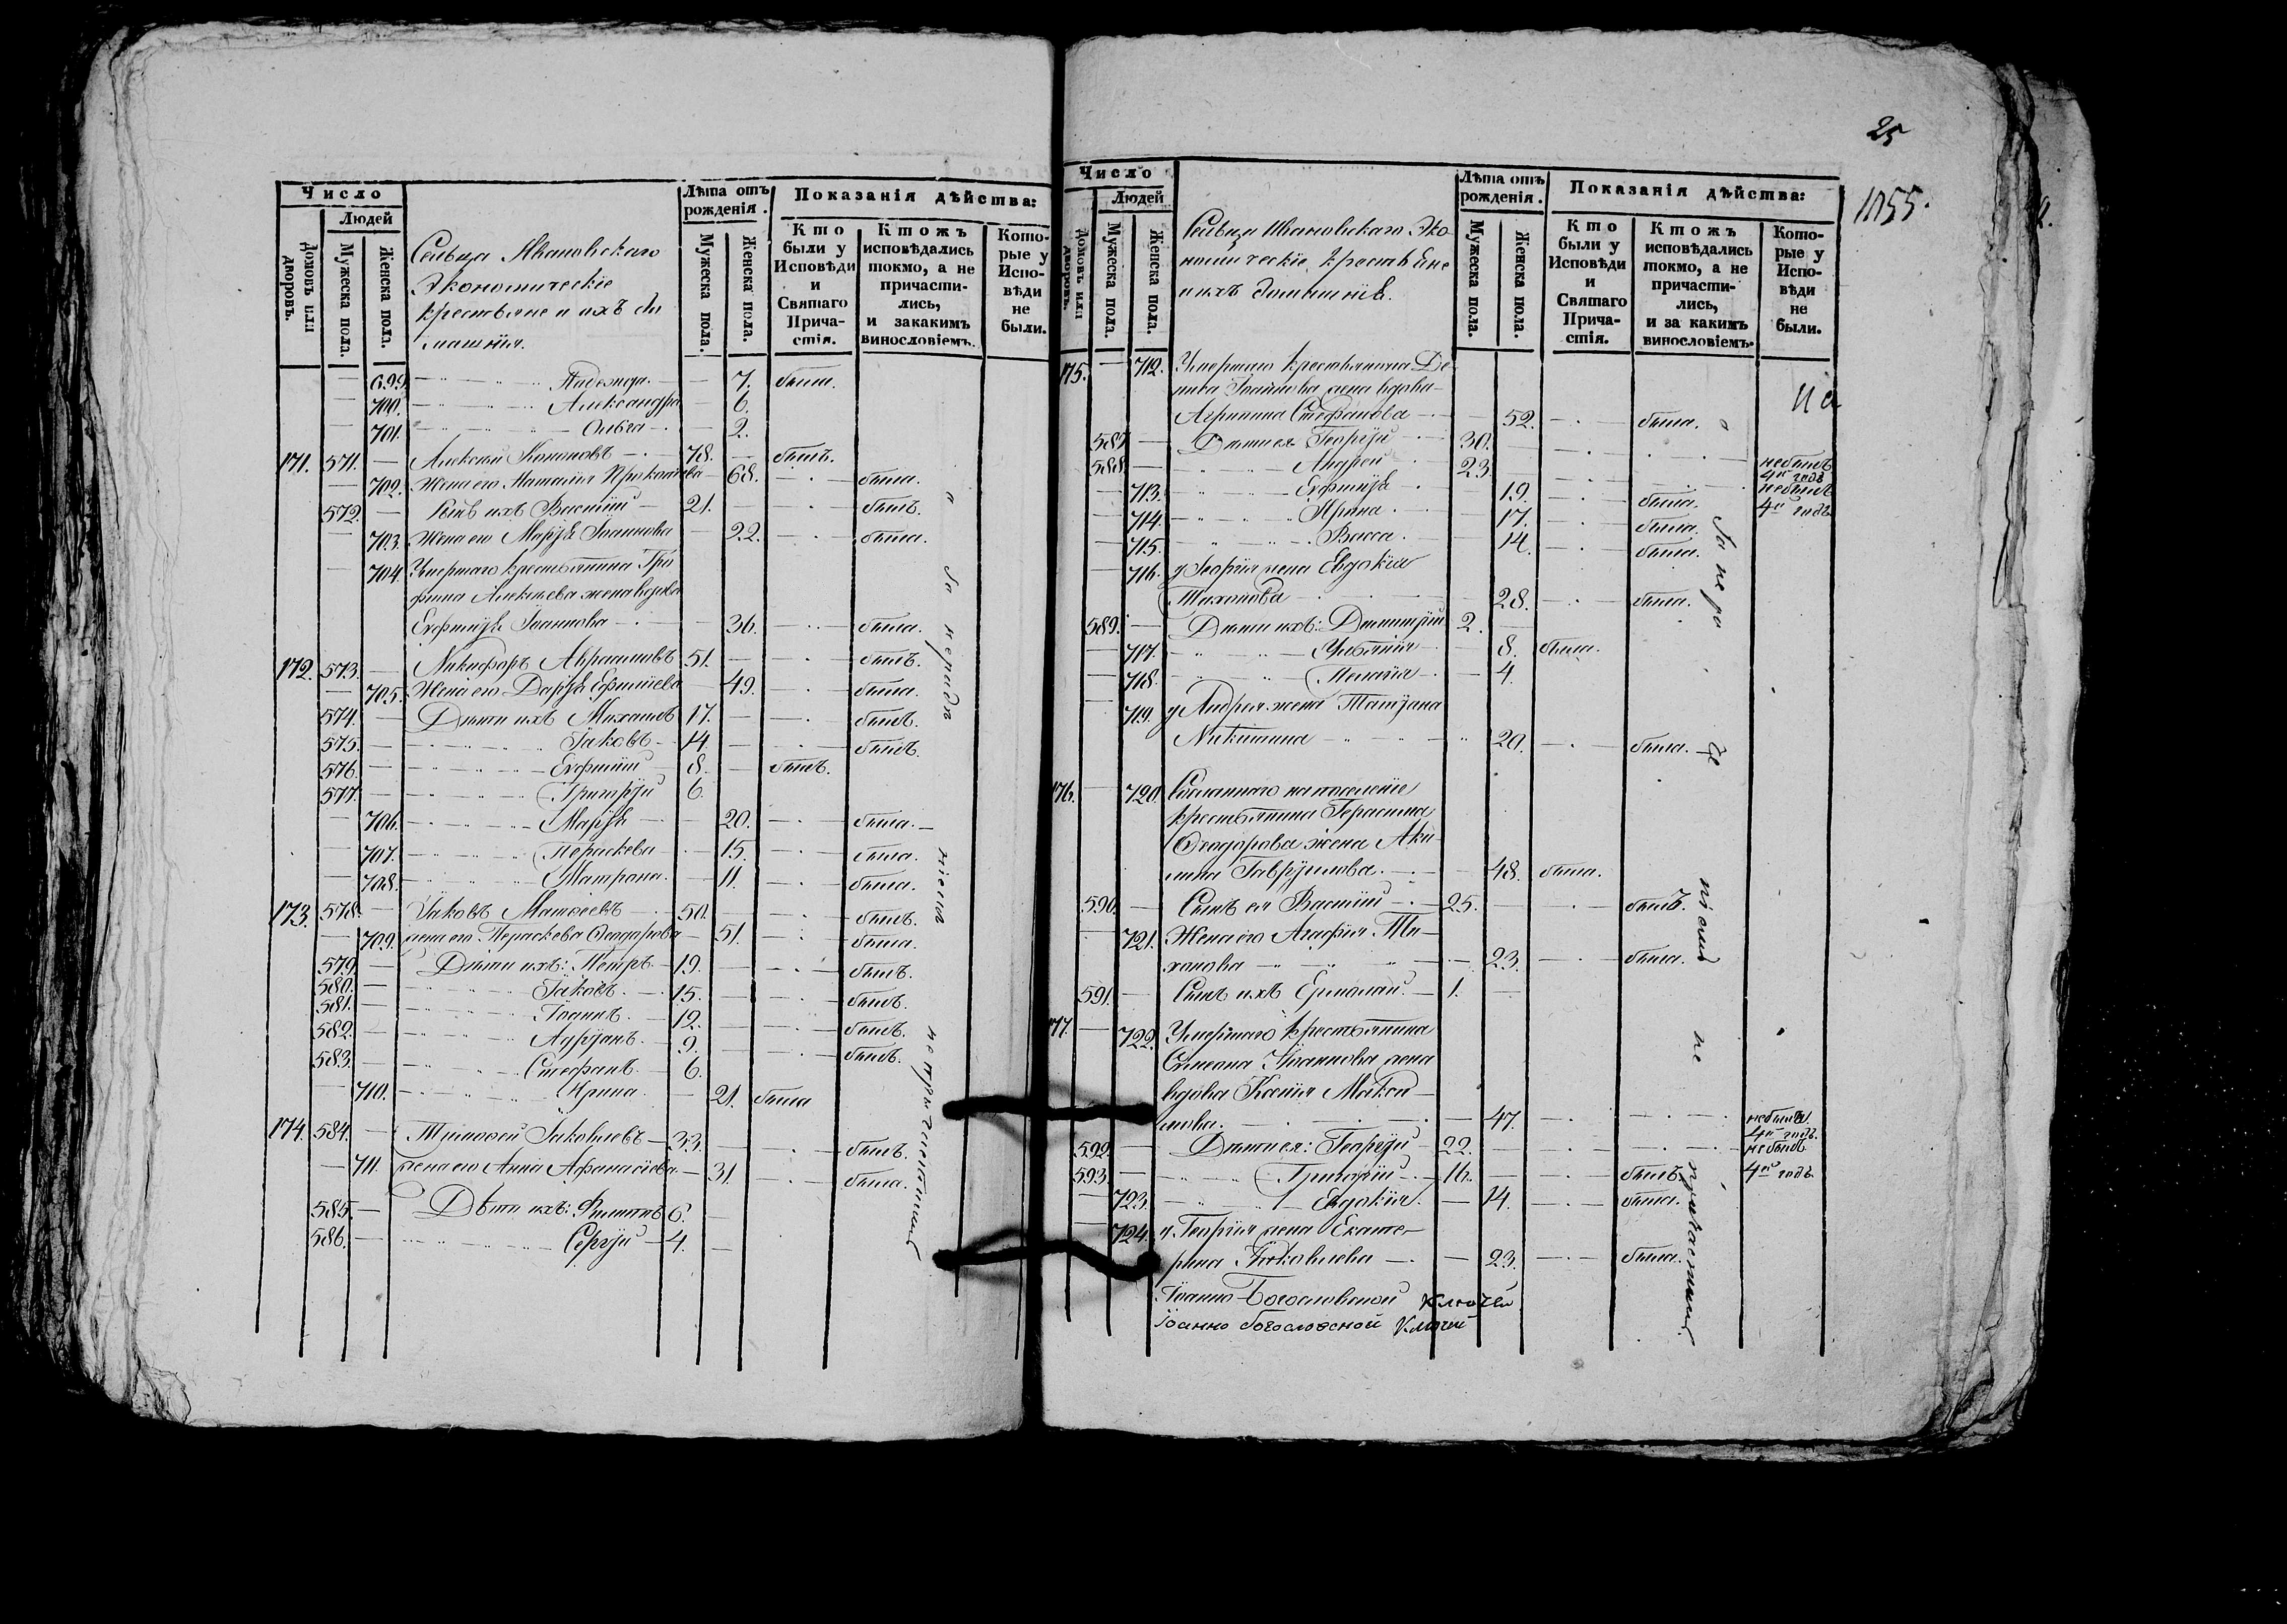 Число
Людей
Домовъ или дворовъ.
Мужеска пола.
Женска пола.
Сельца Ивановскаго
Экономическіе
крестьяне и ихъ до
машнія.
Лѣта отъ рожденія.
Мужеска пола.
Женска пола.
Показанія дѣйства:
Кто были у Исповѣди и Святаго Причастія.
Ктожъ исповѣдались токмо, а не причастились, и закакимъ винословіемъ.
Которые у Исповѣди не были.
699. Надежда. 7. была.
700. Александра 6.
701. Ольга 2.
171. 571. Алексѣй Кононовъ 78. былъ.
702. Жена его Наталія Прокопіева 68. была.
572. Сынъ ихъ Василій 21. былъ.
703. Жена его Марія Іоаннова 22. была.
704. Умершаго крестьянина Тро
фима Алексѣева жена вдова
Евфимія Іоаннова 36. была.
172. 573. Никифоръ Аврамовъ 51. былъ.
705. Жена его Дарія Ефимова 49. была.
574. Дѣти ихъ Михаилъ 17. былъ.
575. Іаковъ 14. былъ.
576. Евфимій 8. былъ.
577. Григорій 6.
706. Марія 20. была.
707. Параскева 15. была.
708. Матрона. 11. была.
173. 578. Іаковъ Матѳеевъ 50. былъ.
709. жена его Параскева Ѳеодорова 51. была.
579. Дѣти ихъ: Петръ 19. былъ.
580. Іаковъ. 15. былъ.
581. Іоаннъ. 12. былъ.
582. Адріанъ. 9. былъ.
583. Стефанъ. 6.
710. Ирина. 21. была
174. 584. Тимоѳей Іаковлевъ 33. былъ.
711. жена его Анна Афанасіева 31. была.
585. Дѣти ихъ: Филиппъ 6.
586. Сергій 4.
25
1055.
Число
Людей
Домовъ или дворовъ.
Мужеска пола.
Женска пола.
Сельца Ивановскаго Эко
номическіе крестьяне
и ихъ домашнія.
Лѣта отъ рожденія.
Мужеска пола.
Женска пола.
Показанія дѣйства:
Кто были у Исповѣди и Святаго Причастія.
Ктожъ исповѣдались токмо, а не причастились, и за какимъ винословіемъ.
Которые у Исповѣди не были.
175. 712. Умершаго крестьянина Де
нива Іоаннова жена вдова
Агрипина Стефанова 52. была.
587. Дѣти ея Георгій 30. небылъ 4й годъ
588. Андрей 23. небылъ 4й годъ
713. Евфимія 19. была.
714. Ирина 17. была.
715. Васса. 14. была.
716. у Георгія жена Евдокія
Тихонова 28. была.
589. Дѣти ихъ: Димитрій 2.
717. Уліянія 8. была.
718. Пелагія 4.
719. у Андрея жена Татіана
Никитина 20. была.
176. 720. Сосланнаго на поселеніе
крестьянина Герасима
Ѳеодорова жена Аки
лина Гавріилова. 48. была.
590. Сынъ ея Василій 25. былъ.
721. Жена его Агафія Ти
хонова 23. была.
591. Сынъ ихъ Ермолай. 1.
177. 722. Умершаго крестьянина
Симеона Іоаннова жена
вдова Ксенія Макси
мова. 47. небыла 4й годъ.
592. Дѣти ея: Георгій 22. небылъ 4й годъ
593. Григорій 16. былъ.
723. Евдокія. 14. была.
724. у Георгія жена Екате
рина Іаковлева 23. была.
Іоанно-Богословской Ключей
Іоанно Богословской Ключей